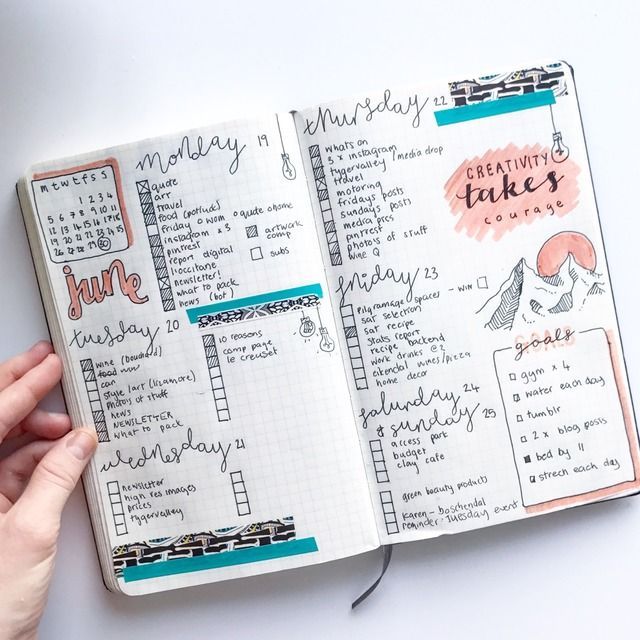 m t w t f s s
1 2 3 4
5 6 7 8 9 10 11
12 13 14 15 16 17 18
19 20 21 22 23 24 25
26 27 28 29 30
june
monday 19
quote
art
travel
food (
friday @ work
instagram x 3
pintrest
report digital
l'occitane
newsletter!
what to pack
news (bot)
quote @ home
artwork
comp
subs
tuesday 20
wine (
food
car
style last (lisamore)
photos of stuff
news
NEWSLETTER
what to pack
10 reasons
comp page
le creuset
wednesday 21
newsletter
high res images
prices
tygervalley
thursday 22
whats on
3 x instagram
tygervalley / media drop
travel
motoring
fridays posts
sundays posts
media pres
pintrest
photos of stuff
wine Q
friday 23
pilgramage spaces - WIN
sat selection
sat recipe
stats report
recipe backend
work drinks @ 2
extended wines/pizza
home decor
saturday 24
& sunday 25
access part
budget
clay cafe
green beauty products
Karen - boschendal
reminder: Tuesday event
CREATIVITY
takes
courage
goals
gym x 4
water each day
tumblr
2 x blog posts
bed by 11
strech each day